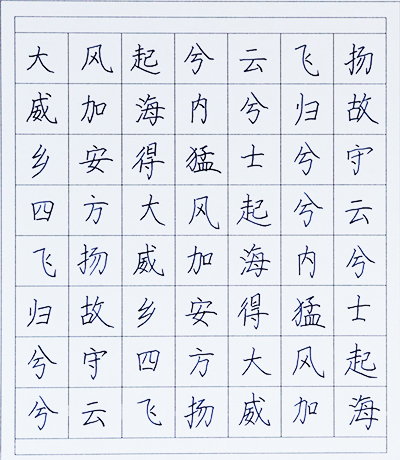 大风起兮云飞扬
威加海内兮归故
乡安得猛士兮守
四方大风起兮云
飞扬威加海内兮
归故乡安得猛士
兮守四方大风起
兮云飞扬威加海